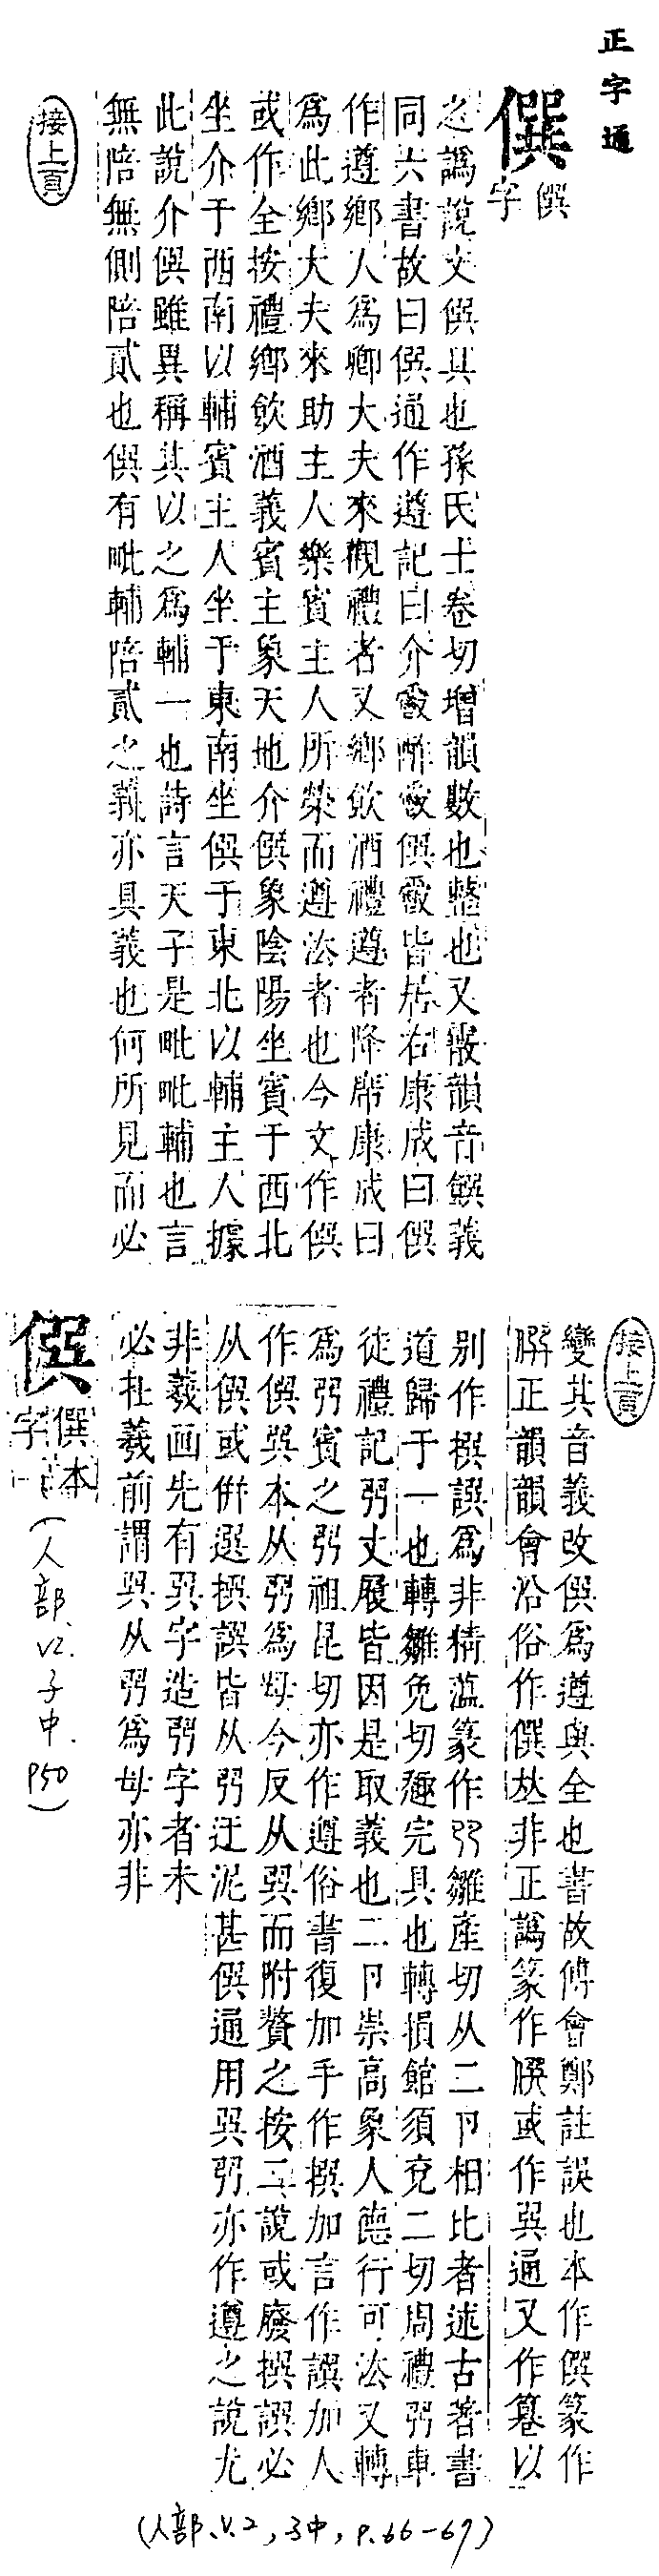 正字通
僎
僎
字
之譌說文僎具也孫氏士卷切增韻數也整也又霰韻音饌義
同六書故曰僎通作遵記曰介爵酢爵僎爵皆居右康成曰僎
作遵鄉人為卿大夫來觀禮者又鄉飲酒禮遵者降席康成曰
為此鄉大夫來助主人樂賓主人所榮而遵法者也今文作僎
或作全按禮鄉飲酒義賓主象天地介僎象陰陽坐賓于西北
坐介于西南以輔賓主人坐于東南坐僎于東北以輔主人據
此說介僎雖異稱其以之為輔一也詩言天子是毗毗輔也言
無陪無側陪貳也僎有毗輔陪貳之義亦具義也何所見而必
接上頁
接上頁
變其音義改僎為遵與全也書故傅會鄭註誤也本作僎篆作
正韻韻會沿俗作僎𠀤非正譌篆作或作巽通又作篹以
別作撰譔為非精薀篆作㢲雛產切从二卪相比者述古著書
道歸于一也轉雛免切趣完具也轉損館須兗二切周禮㢲車
徒禮記㢲丈屨皆因是取義也二卪崇高象人德行可法又轉
為㢲賓之㢲祖昆切亦作遵俗書復加手作撰加言作譔加人
作僎巽本从㢲為母今反从巽而附贅之按二說或廢撰譔必
从僎或併選撰譔皆从㢲迂泥甚僎通用巽㢲亦作遵之說尤
非羲画先有巽字造㢲字者未
必在羲前謂巽从㢲為母亦非
僎
僎本
字
(人部、V2.子中.P50)
(人部、V.2,子中,P.66-67)